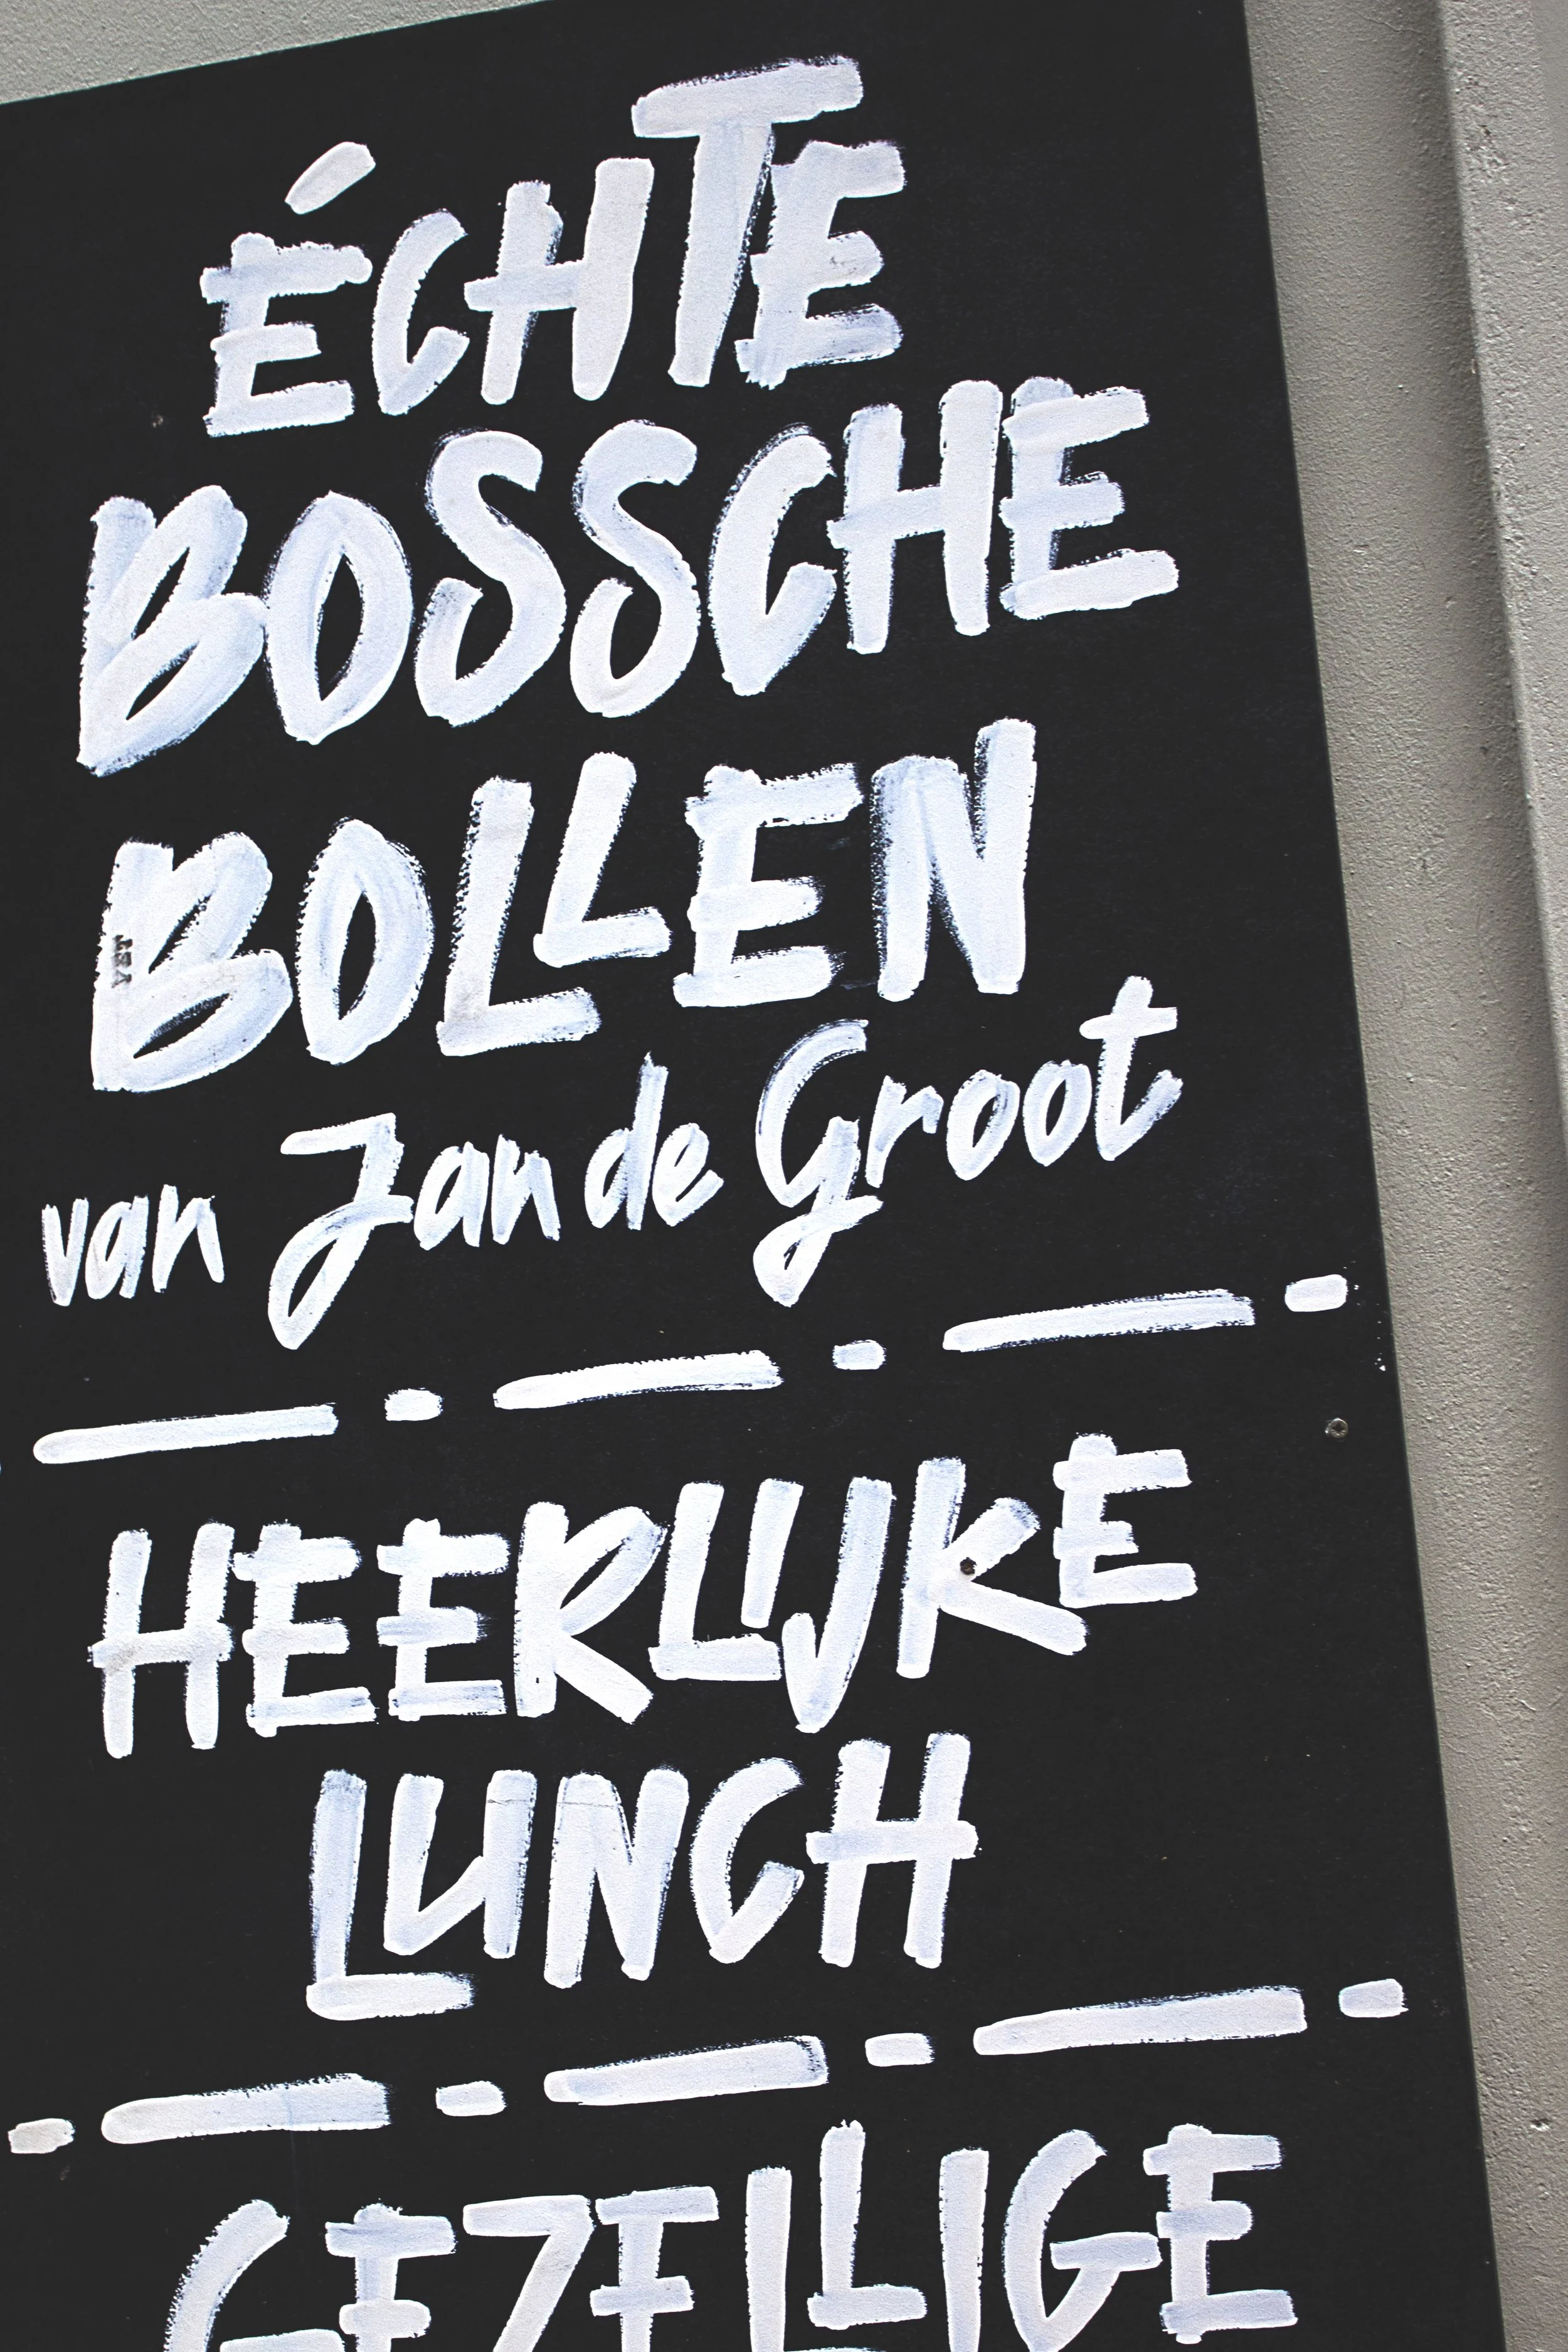 ÉCHTE
BOSSCHE
BOLLEN
van Jan de Groot
HEERLIJKE
LUNCH
GEZELLIGE